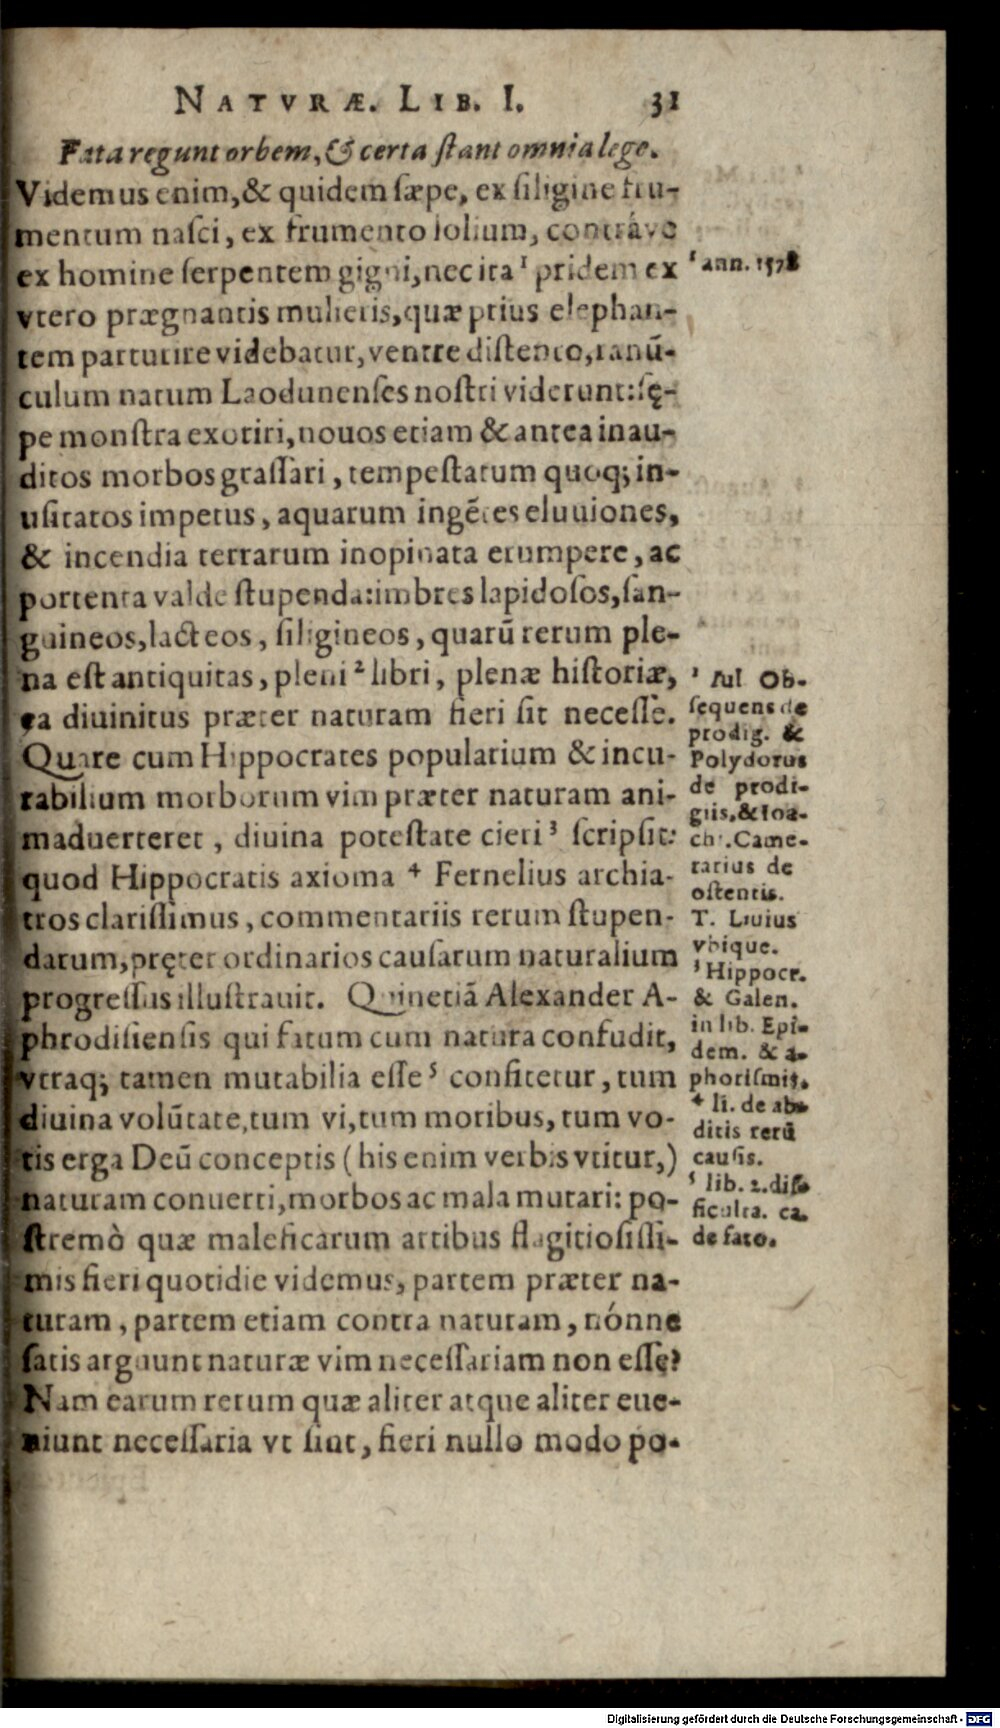 NATVRÆ. LIB. I. 31
Fata regunt orbem, & certa ſtant omnia lege.
Videmus enim, & quidem ſæpe, ex ſiligine fru-
mentum naſci, ex frumento lolium, contráve
ex homine ſerpentem gigni, nec ita ¹ pridem ex
vtero prægnantis mulieris, quæ prius elephan-
tem parturire videbatur, ventre diſtento, ranū-
culum natum Laodunenſes noſtri viderunt: ſę-
pe monſtra exoriri, nouos etiam & antea inau-
ditos morbos graſſari, tempeſtatum quoq; in-
uſitatos impetus, aquarum ingētes eluuiones,
& incendia terrarum inopinata erumpere, ac
portenta valde ſtupenda: imbres lapidoſos, ſan-
guineos, lacteos, ſiligineos, quarū rerum ple-
na eſt antiquitas, pleni ² libri, plenæ hiſtoriæ,
ea diuinitus præter naturam fieri ſit neceſſe.
Quare cum Hippocrates popularium & incu-
rabilium morborum vim præter naturam ani-
maduerteret, diuina poteſtate cieri ³ ſcripſit:
quod Hippocratis axioma ⁴ Fernelius archia-
tros clariſſimus, commentariis rerum ſtupen-
darum, pręter ordinarios cauſarum naturalium
progreſſus illuſtrauit. Quinetiā Alexander A-
phrodiſienſis qui fatum cum natura confudit,
vtraq; tamen mutabilia eſſe ⁵ confitetur, tum
diuina volūtate, tum vi, tum moribus, tum vo-
tis erga Deū conceptis (his enim verbis vtitur,)
naturam conuerti, morbos ac mala mutari: po-
ſtremò quæ maleficarum artibus flagitioſiſſi-
mis fieri quotidie videmus, partem præter na-
turam, partem etiam contra naturam, nónne
ſatis arguunt naturæ vim neceſſariam non eſſe?
Nam earum rerum quæ aliter atque aliter eue-
niunt neceſſaria vt ſint, fieri nullo modo po-
¹ ann. 1578
² Iul Ob-
ſequens de
prodig. &
Polydorus
de prodi-
giis, & Ioa-
ch. Came-
rarius de
oſtentis.
T. Liuius
vbique.
³ Hippocr.
& Galen.
in lib. Epi-
dem. & a-
phoriſmis.
⁴ li. de ab-
ditis rerū
cauſis.
⁵ lib. 2. dif-
ficulta. ca.
de fato.
Digitalisierung gefördert durch die Deutsche Forschungsgemeinschaft - DFG